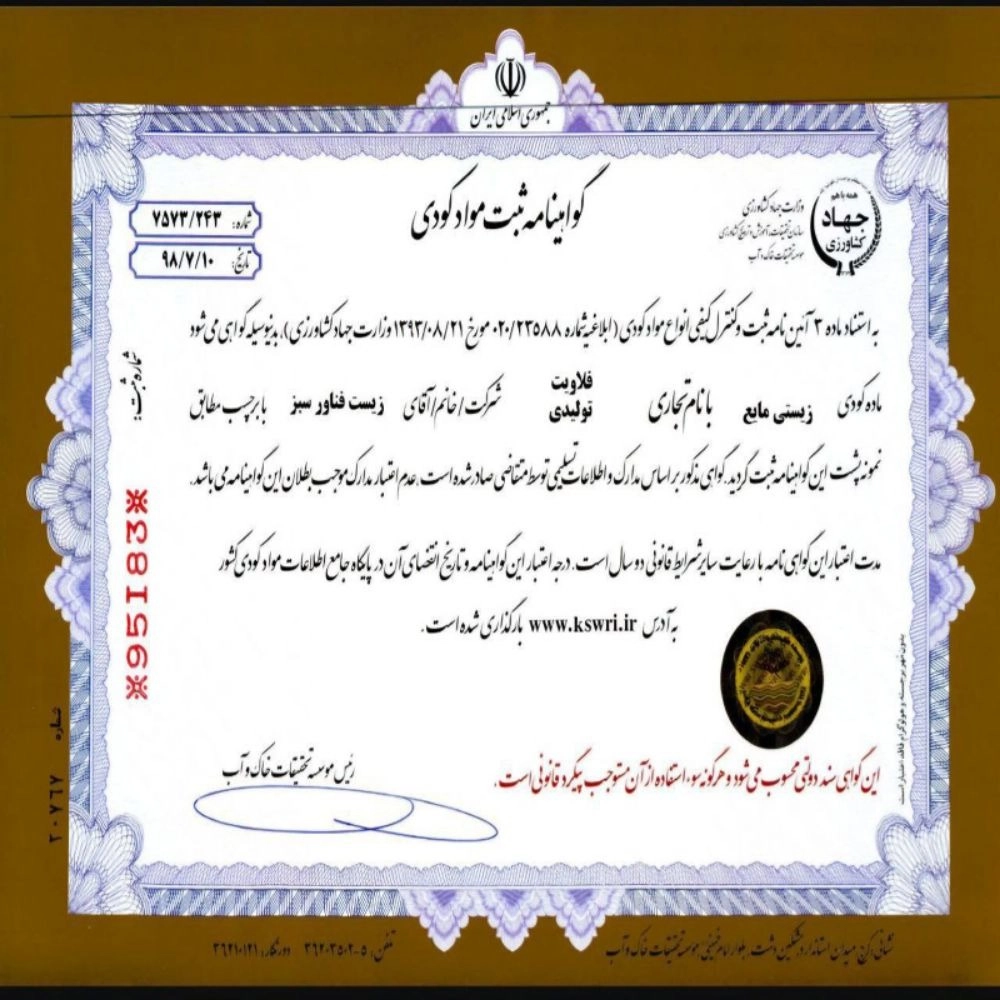 جمهوری اسلامی ایران
همه با هم
جهاد
کشاورزی
وزارت جهاد کشاورزی
سازمان تحقیقات، آموزش و ترویج کشاورزی
موسسه تحقیقات خاک و آب
گواهینامه ثبت مواد کودی
شماره: ۷۵۷۳/۲۴۳
تاریخ: ۹۸/۷/۱۰
به استناد ماده ۳ آئین نامه ثبت و کنترل کیفی انواع مواد کودی (ابلاغیه شماره ۰۲۰/۲۳۵۸۸ مورخ ۱۳۹۳/۰۸/۲۱ وزارت جهاد کشاورزی)، بدینوسیله گواهی می شود
ماده کودی زیستی مایع با نام تجاری فلاویت تولیدی شرکت/خانم/آقای زیست فناور سبز با برچسب مطابق
نمونه پشت این گواهینامه ثبت گردید. گواهی مذکور بر اساس مدارک و اطلاعات تسلیمی توسط متقاضی صادر شده است. عدم اعتبار مدارک موجب بطلان این گواهینامه می باشد.
مدت اعتبار این گواهی نامه با رعایت سایر شرایط قانونی دو سال است. درجه اعتبار این گواهینامه و تاریخ انقضای آن در پایگاه جامع اطلاعات مواد کودی کشور
به آدرس www.kswri.ir بارگذاری شده است.
شماره ثبت:
※95183※
بدون مهر برجسته و هولوگرام فاقد اعتبار است
رئیس موسسه تحقیقات خاک و آب
این گواهی سند دولتی محسوب می شود و هرگونه سوء استفاده از آن مستوجب پیگرد قانونی است.
شماره ۲۰۷۶۷
نشانی: کرج، میدان استاندارد، مشکین دشت، بلوار امام خمینی، موسسه تحقیقات خاک و آب
تلفن: ۵-۳۶۲۰۳۵۰۲ دورنگار: ۳۶۲۱۰۱۲۱